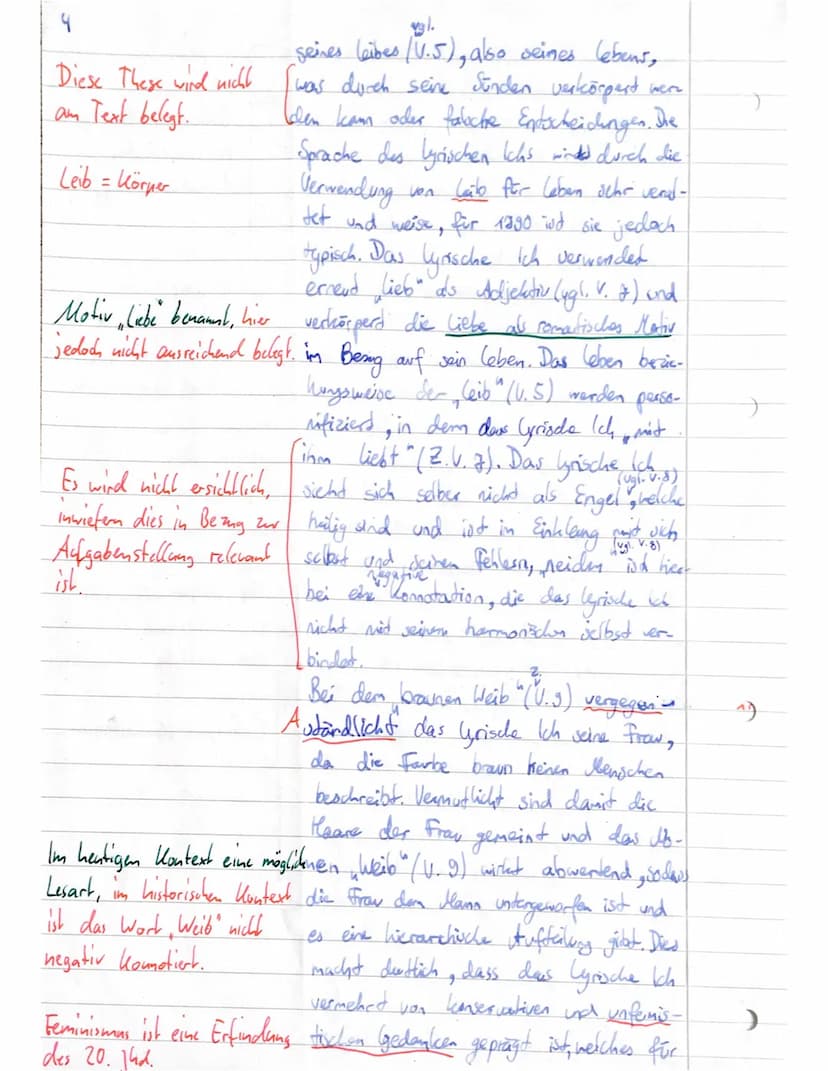 4
vgl.
seines Leibes (V.5), also seines Lebens,
was durch seine Sünden verkörpert wer
den kann oder falsche Entscheidungen. Die
Sprache des lyrischen Ichs wird durch die
Verwendung von Leib für Leben sehr veral-
tet und weise, für 1890 ist sie jedoch
typisch. Das lyrische Ich verwendet
erneut „lieb" als Adjektiv (vgl. V. 7) und
verkörperd die Liebe als romatisches Motiv
in Bezug auf sein Leben. Das Leben bezie-
hungsweise der „Leib" (V. 5) werden perso-
nifiziert, in dem das lyrische Ich „mit
ihm liebt" (Z. V. 7). Das lyrische Ich
(vgl. V. 8)
sieht sich selber nicht als Engel, welche
heilig sind und ist im Einklang mit sich
(vgl. V. 8)
selbst und seinen Fehlern, „neiden ist hier
negative
bei eine Konnotation, die das lyrische Ich
nicht mit seinem harmonischen selbst ver-
bindet.
Z.
Bei dem „braunen Weib" (V. 9) vergegen-
ständlicht das lyrische Ich seine Frau,
da die Farbe braun keinen Menschen
beschreibt. Vermutlicht sind damit die
Haare der Frau gemeint und das No-
men „Weib" (V. 9) wirkt abwertend, sodass
die Frau dem Mann untergeworfen ist und
es eine hierarchische Aufteilung gibt. Dies
macht deutlich, dass das lyrische Ich
vermehrt von konservativen und unfemis-
tischen Gedanken geprägt ist, welches für
Diese These wird nicht
am Text belegt.
Leib = Körper
Motiv „Liebe" benannt, hier
jedoch nicht ausreichend belegt.
Es wird nicht ersichtlich,
inwiefern dies in Bezug zur
Aufgabenstellung relevant
ist.
A
Im heutigen Kontext eine mögliche
Lesart, im historischen Kontext
ist das Wort „Weib" nicht
negativ konnotiert.
Feminismus ist eine Erfindung
des 20. Jhd.